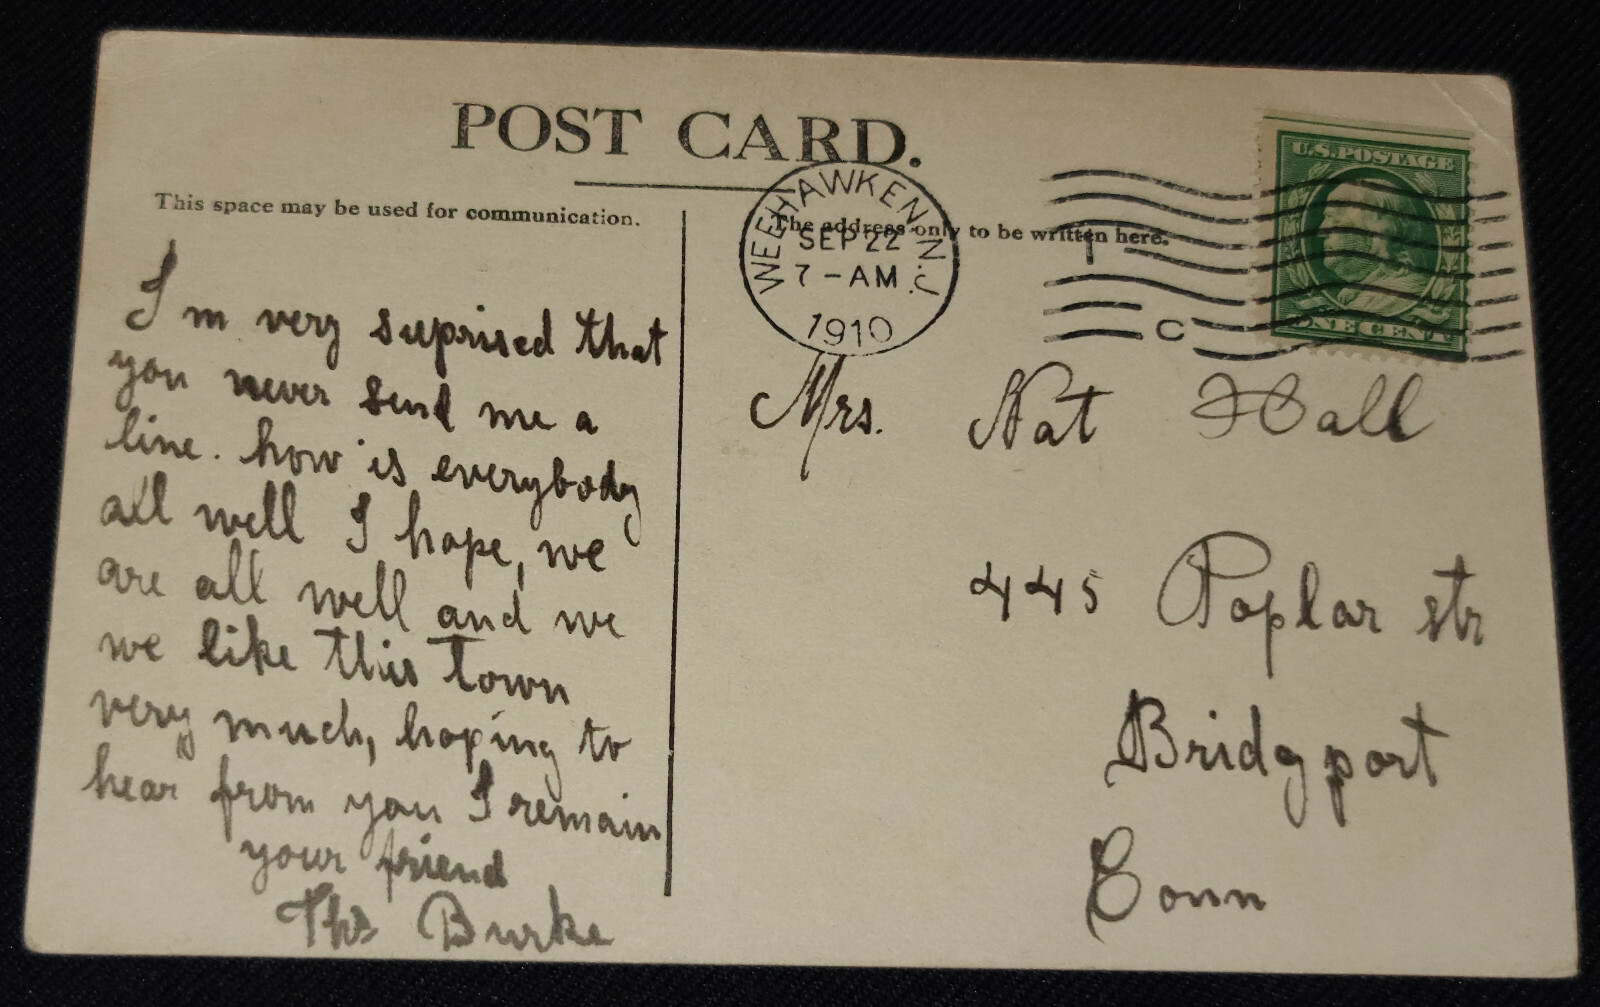 POST CARD.
This space may be used for communication.
The address only to be written here.
WEEHAWKEN N.J.
SEP 22
7-AM
1910
C
U.S. POSTAGE
ONE CENT
I'm very suprised that
you never send me a
line. how is everybody
all well I hope, we
are all well and we
we like this town
very much, hoping to
hear from you I remain
your friend
Ths Burke
Mrs. Nat Hall
445 Poplar str
Bridgport
Conn